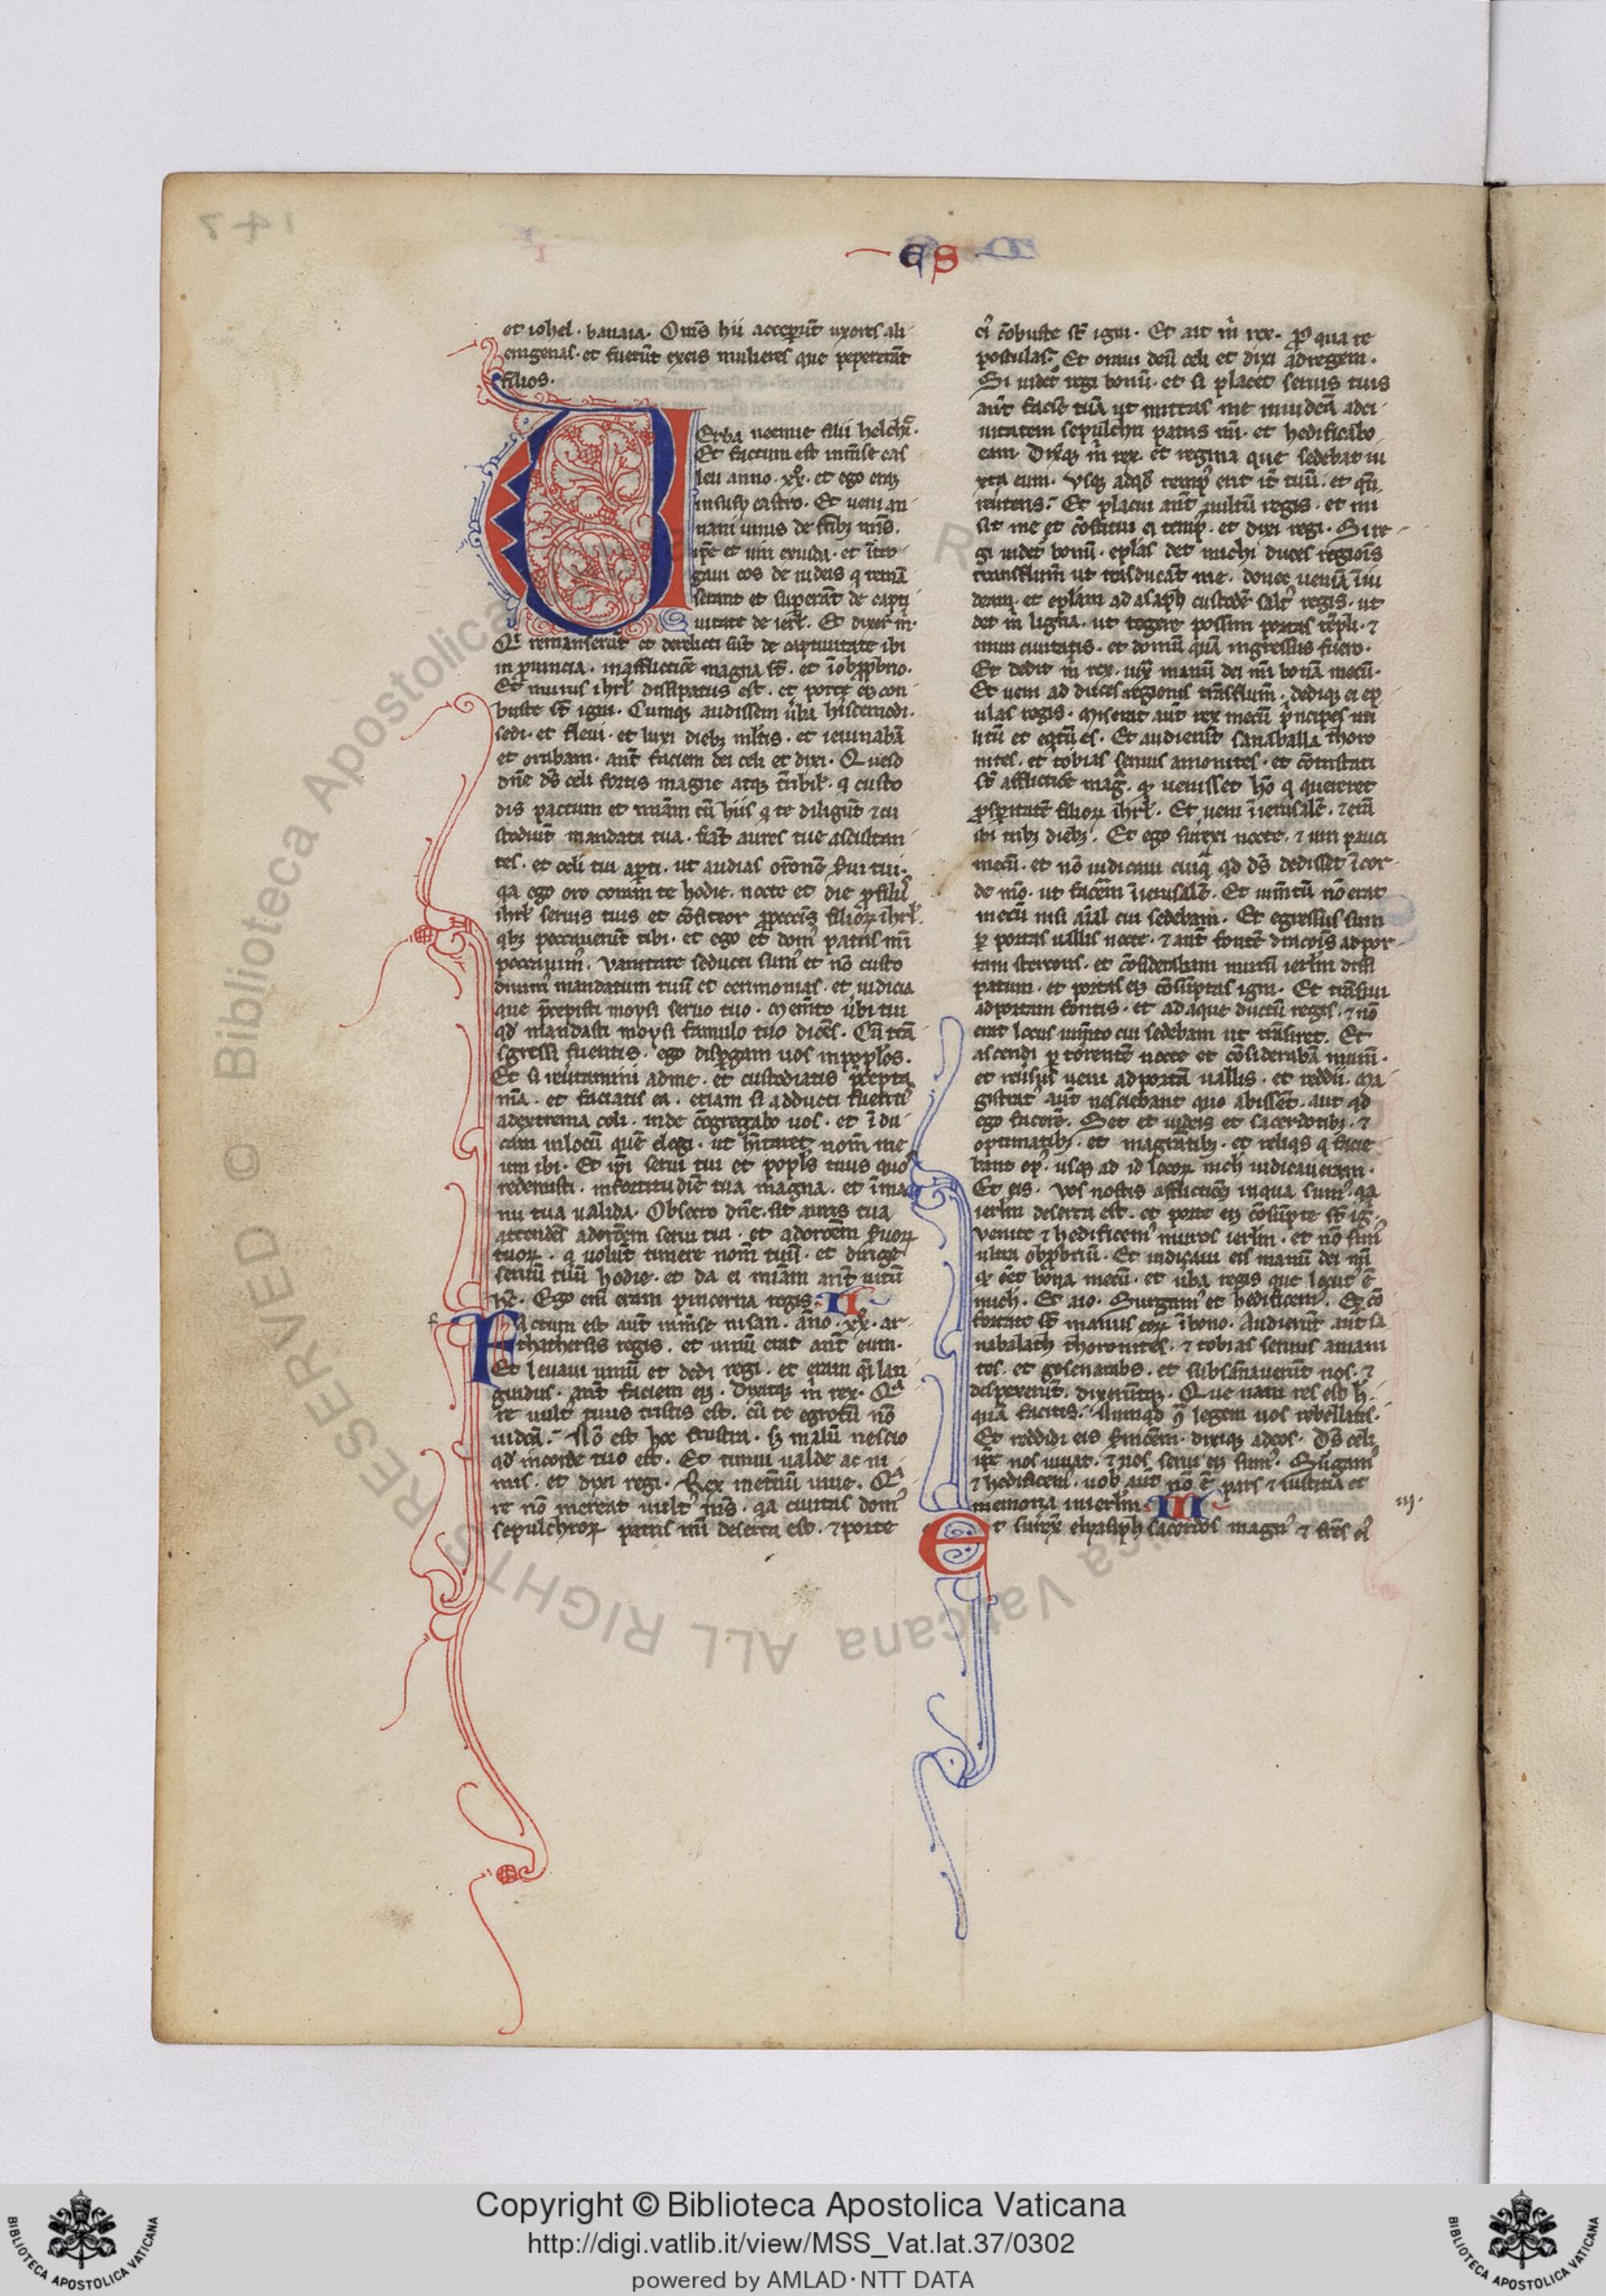 ES
et iohel · banaia · Oms hii acceperut uxores ali
enigenas · et fuerut ex eis mulieres que pepererat
filios ·
Verba neemie filii helchie ·
Et factum est in mense cas
leu anno · xx · et ego eram
in susis castro · Et venit an
nani unus de fribus meis ·
ipe et viri ex iuda · et inter
gavi eos de iudeis qui reman
serant et superat de capti
vitate de ierl · Et dixert m ·
Qi remanserut et derelicti sut de captivitate ibi
in provincia · in afflictioe magna st · et i obpprobrio ·
Et murus ihrl dissipatus est · et porte eius con
buste st igni · Cumque audissem vba huiscemodi ·
sedi · et flevi · et luxi diebus mltis · et ieiunaba
et orabam · ant faciem dei celi et dixi · Queso
dne ds celi fortis magne atque tribil · q custo
dis pactum et miam cu hiis q te diligut et cu
stodiut mandata tua · fiat aures tue ascultan
tes · et oculi tui apti · ut audias oronem servi tui ·
qa ego oro coram te hodie · nocte et die p filiis
ihrl servis tuis et cofiteor p peccatis filior ihrl
qbus peccaverut tibi · et ego et dom patris mi
peccavim · Vanitate seducti sum et no custo
divim mandatum tuu et cerimonias · et iudicia
que precepisti moysi servo tuo · Memto vbi tui
qd mandasti moysi famulo tuo dices · Cu tra
sgressi fueritis · ego dispgam vos in popplos ·
Et si revtamini ad me · et custodiatis precepta
ma · et faciatis ea · etiam si adducti fueritis
ad extrema celi · inde cogregabo vos · et i du
cam in locu que elegi · ut hitaret nom me
um ibi · Et ipi servi tui et popls tuus quos
redemisti · in fortitudie tua magna · et i ma
nu tua valida · Obsecro dne · sit auris tua
attendes ad oroem servi tui · et ad oroem servor
tuor · q volut timere nom tuu · et dirige
servu tuu hodie · et da ei miam ant viru
hc · Ego eni eram pincerna regis · II
Factum est aut in mse nisan · ano · xx · ar
thathersis regis · et vinu erat ant eum ·
Et levavi vinu et dedi regi · et eram qi lan
guidus · ant faciem eius · Dixitque m rex · Qa
re vult tuus tristis est · cu te egrotu no
videa · No est hoc frustra · s malu nescio
qd in corde tuo est · Et timui valde ac ni
mis · et dixi regi · Rex inetnu vive · Qa
re no mereat vult ms · qa civitas dom
sepulchror patris mi deserta est · et porte
ei cobuste st igni · Et ait m rex · pro qua re
postulas · Et oravi deu celi et dixi ad regem ·
Si videt regi bonu · et si placet servus tuus
ant facie tua ut mittas me in iudea ad ci
vitatem sepulchri patris mi · et hedificabo
eam · Dixitque m rex · et regina que sedebat iu
xta eum · Usque ad qd temp erit it tuu · et qn
revteris · Et placui ant vultu regis · et mi
sit me et costitui ei temp · et dixi regi · Si re
gi videt bonu · eplas det michi duces regiois
transflum ut trasducat me · donec venia i iu
deam · et eplam ad asaph custode salt regis · ut
det m ligna · ut tegere possim portas tepli · et
muri civitatis · et domu qua ingressus fuero ·
Et dedit m rex · iux manu dei mi bona mecu ·
Et veni ad duces regionis trasflum · dedique ei ep
ulas regis · Miserat aut rex mecu principes mi
litu et equites · Et audierut sanaballa thoro
nites · et tobias servus amonites · et cotristati
st afflictioe mag · qd venisset ho q quereret
prosperitate filior ihrl · Et veni i ierusale · et era
ibi tribus diebus · Et ego surexi nocte · et viri pauci
mecu · et no iudicavi cuiq qd ds dedisset i cor
de mo · ut facem i ierusale · Et iumtu no erat
mecu nisi aial cui sedebam · Et egressus sum
p portas vallis nocte · et ant fonte dracois ad por
tam stercoris · et cosiderabam muru ierlm dissi
patum · et portas eius cosumptas igni · Et trasivi
ad portam fontis · et ad aque ductu regis · et no
erat locus iumto cui sedebam ut trasiret · Et
ascendi p torrente nocte et cosideraba muru ·
et revsus veni ad porta vallis · et reddii · Ma
gistrat aut nesciebant quo abisset · aut qd
ego facere · Set et iudeis et sacerdotibus · et
optimatibus · et magratibus · et reliqs q facie
bant op · usque ad id locor nich iudicaveram ·
Et eis · Vos nostis afflictioes in qua sum · qa
ierlm deserta est · et porte eius cosupte st igi ·
Venite et hedificem muros ierlm · et no sim
ultra obprobriu · Et indicavi eis manu dei mi
qd eet bona mecu · et vba regis que locut e
mich · Et aio · Surgam et hedificem · Et co
fortate st manus eor i bono · Audierut aut sa
nabalath thoronites · et tobias servus amani
tes · et gosem arabs · et subsanaverut nos · et
despexerut · dixeruntque · Que nam res est h ·
qua facitis · Numqd contra legem vos rebellatis ·
Et reddidi eis smoem · dixique ad eos · Ds celi
ipe nos iuvat · et nos servi eius sum · Surgam
et hedificem · vob aut no e pars et iustitia et
memoria in ierlm · III
iij ·
Et surex elyasiph sacerdos magn et fres ei
Copyright © Biblioteca Apostolica Vaticana
http://digi.vatlib.it/view/MSS_Vat.lat.37/0302
powered by AMLAD·NTT DATA
BIBLIOTECA APOSTOLICA VATICANA
BIBLIOTECA APOSTOLICA VATICANA
© Biblioteca Apostolica Vaticana ALL RIGHTS RESERVED